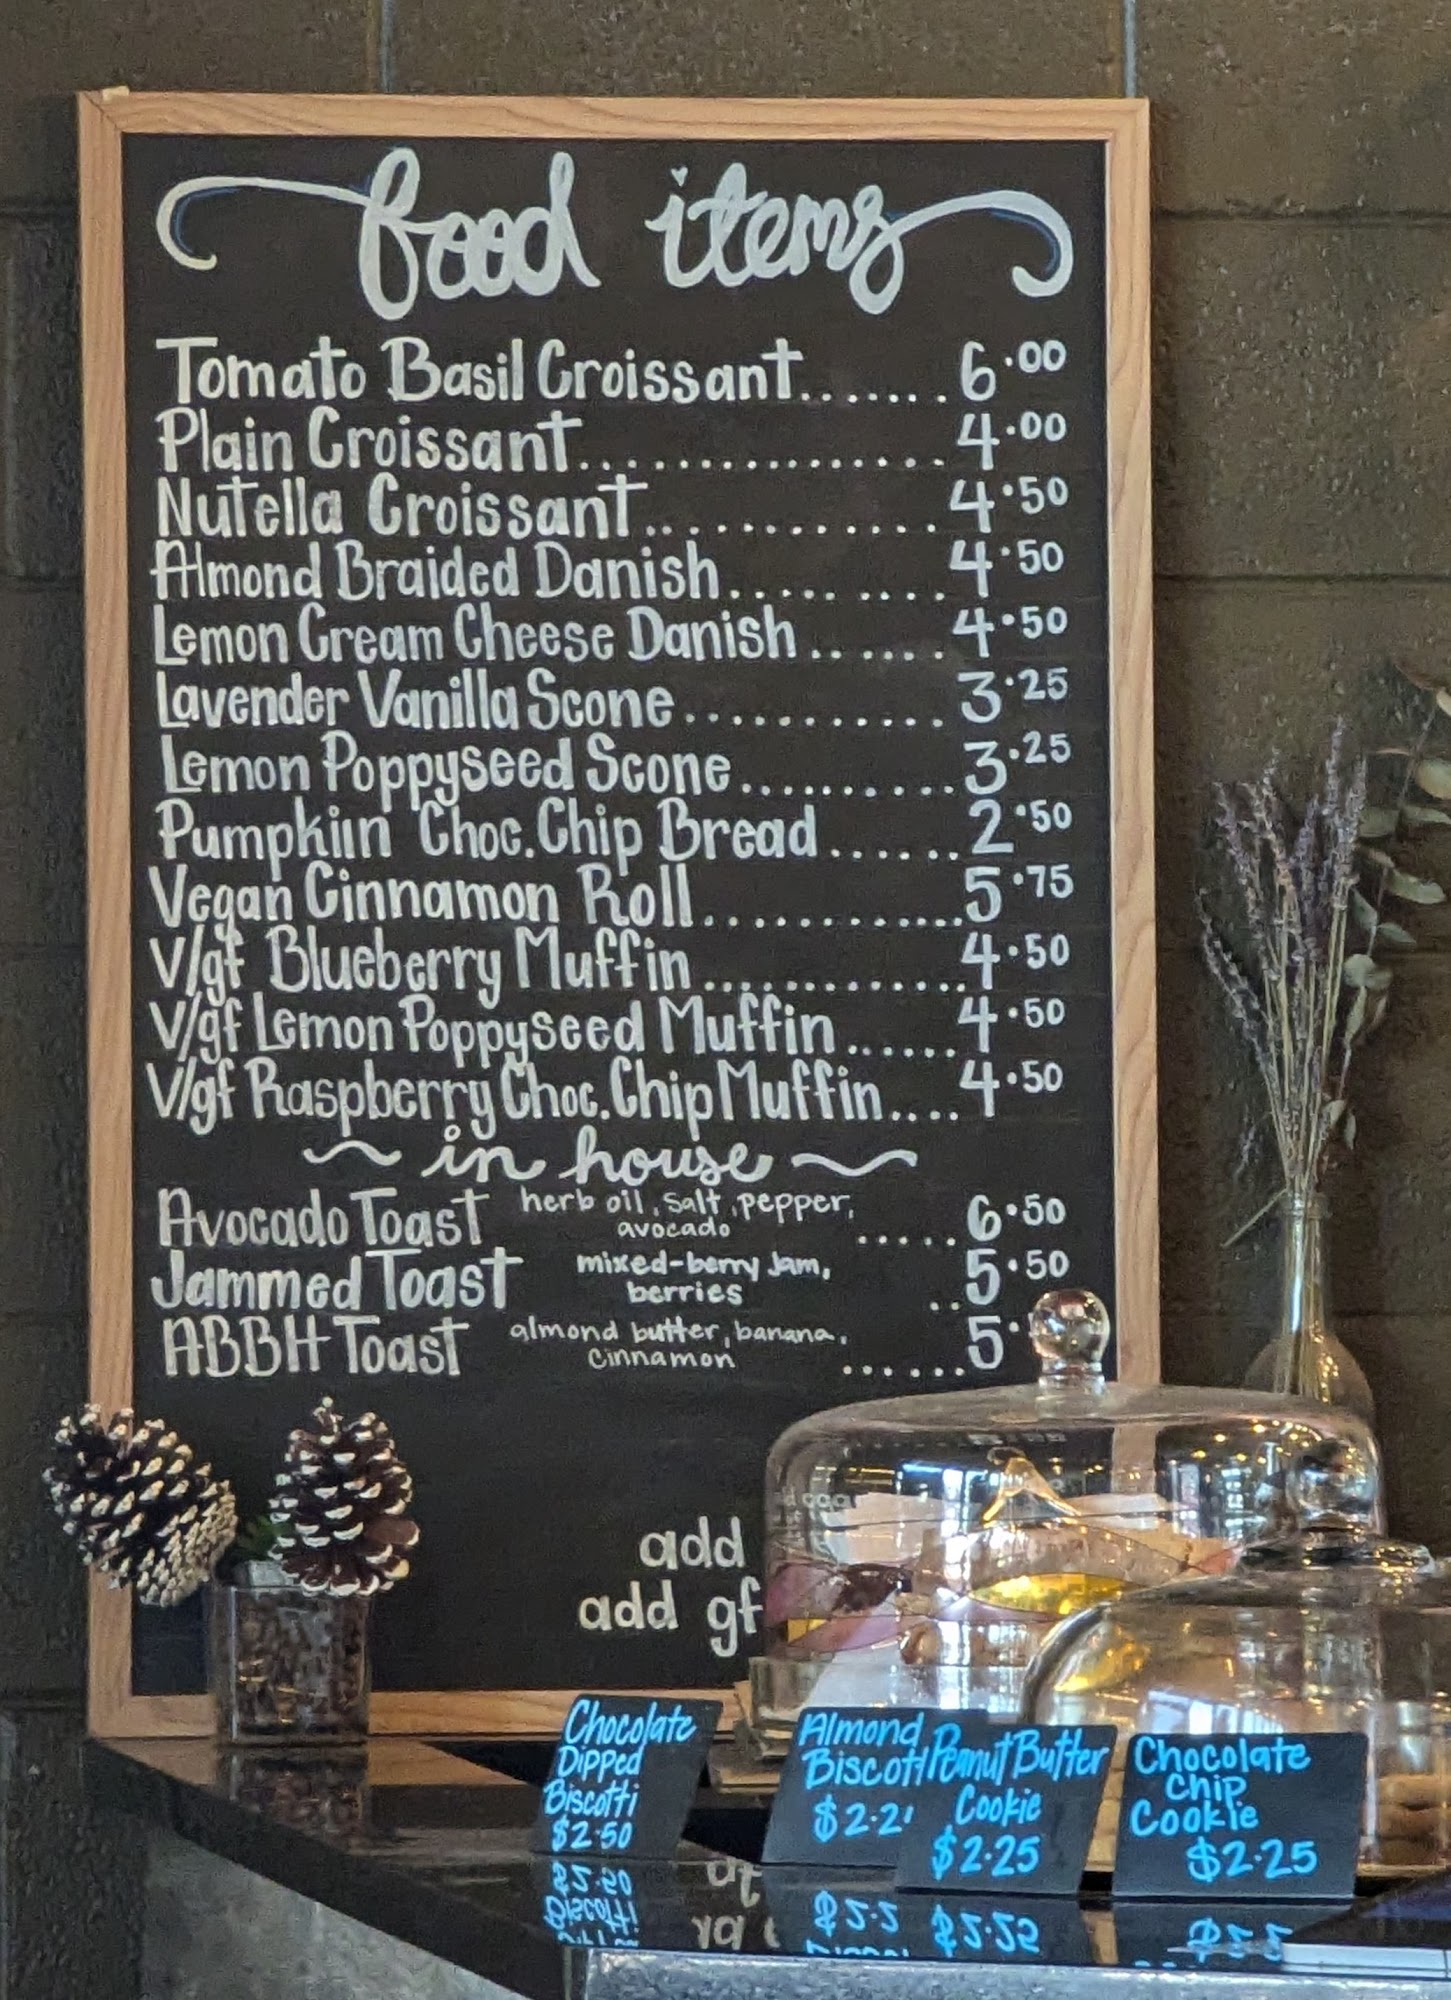 food items
Tomato Basil Croissant....... 6.00
Plain Croissant................ 4.00
Nutella Croissant............. 4.50
Almond Braided Danish.......... 4.50
Lemon Cream Cheese Danish...... 4.50
Lavender Vanilla Scone........... 3.25
Lemon Poppyseed Scone.......... 3.25
Pumpkiin Choc. Chip Bread...... 2.50
Vegan Cinnamon Roll............ 5.75
V/gf Blueberry Muffin............. 4.50
V/gf Lemon Poppyseed Muffin...... 4.50
V/gf Raspberry Choc. Chip Muffin.... 4.50
in house
Avocado Toast herb oil, salt, pepper, ..... 6.50
avocado
Jammed Toast mixed-berry jam, .. 5.50
berries
ABBH Toast almond butter, banana, ...... 5.
cinnamon
add
add gf
Chocolate
Dipped
Biscotti
$2.50
Almond
Biscotti
$2.2
Peanut Butter
Cookie
$2.25
Chocolate
Chip
Cookie
$2.25